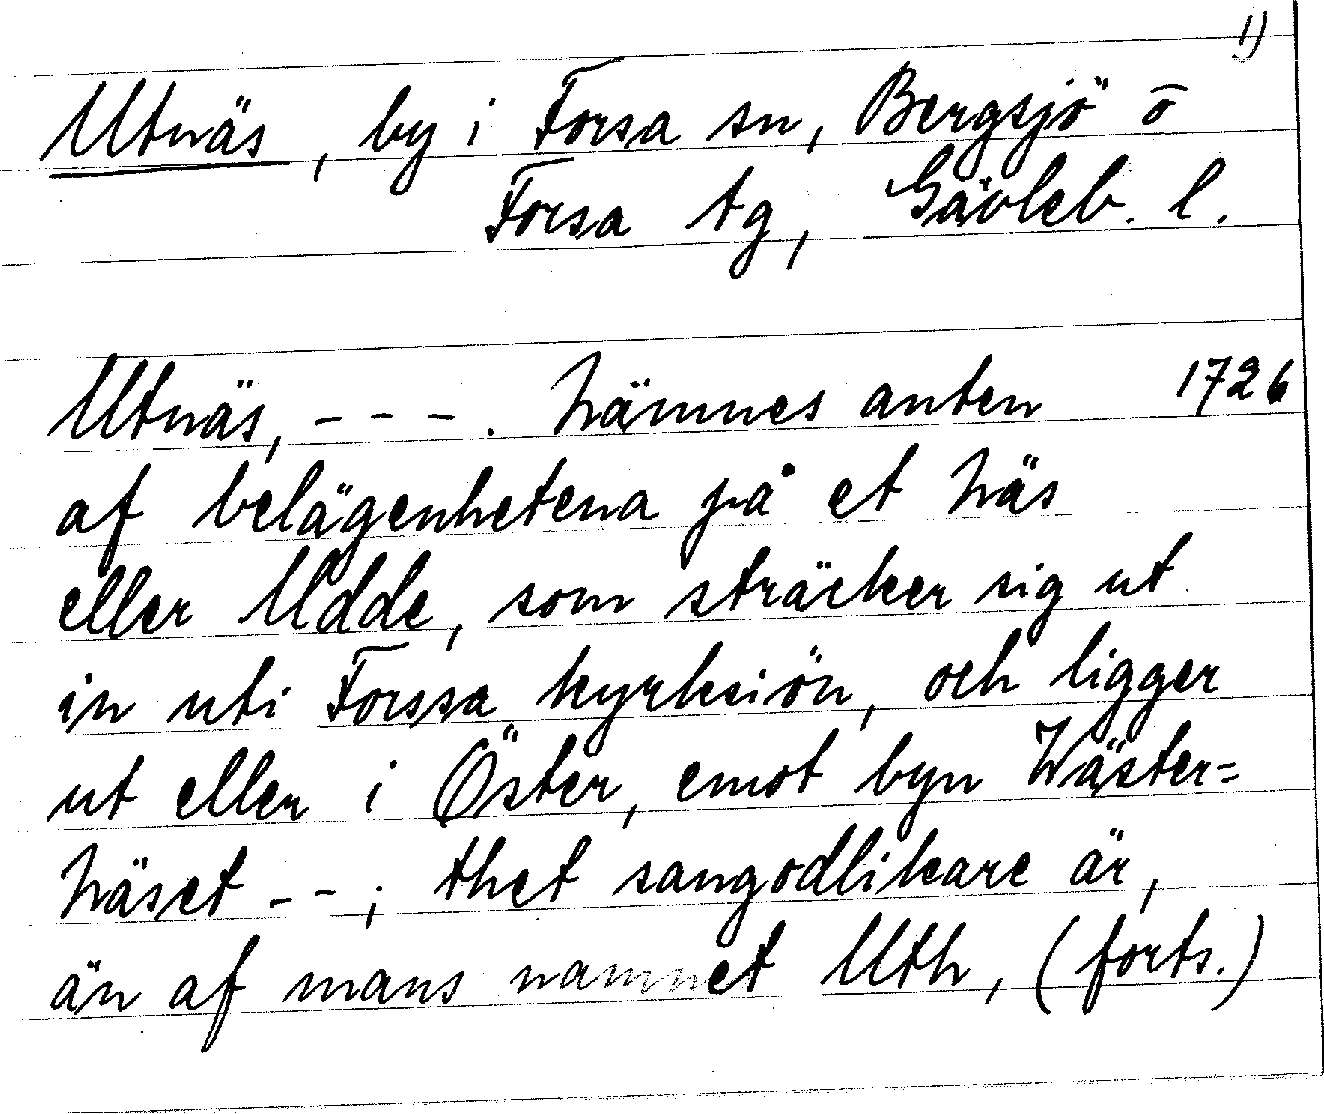 1)
Utnäs, by i Forsa sn, Bergsjö o
Forsa tg, Gävleb. l.
Utnäs, - - - . Nämnes anten 1726
af belägenhetena på et Näs
eller Udde, som sträcker sig ut
in uti Forssa kyrksiön, och ligger
ut eller i Öster, emot byn Wäster=
Näset - - ; thet sangodlikare är,
än af mans namnet Uth, (forts.)